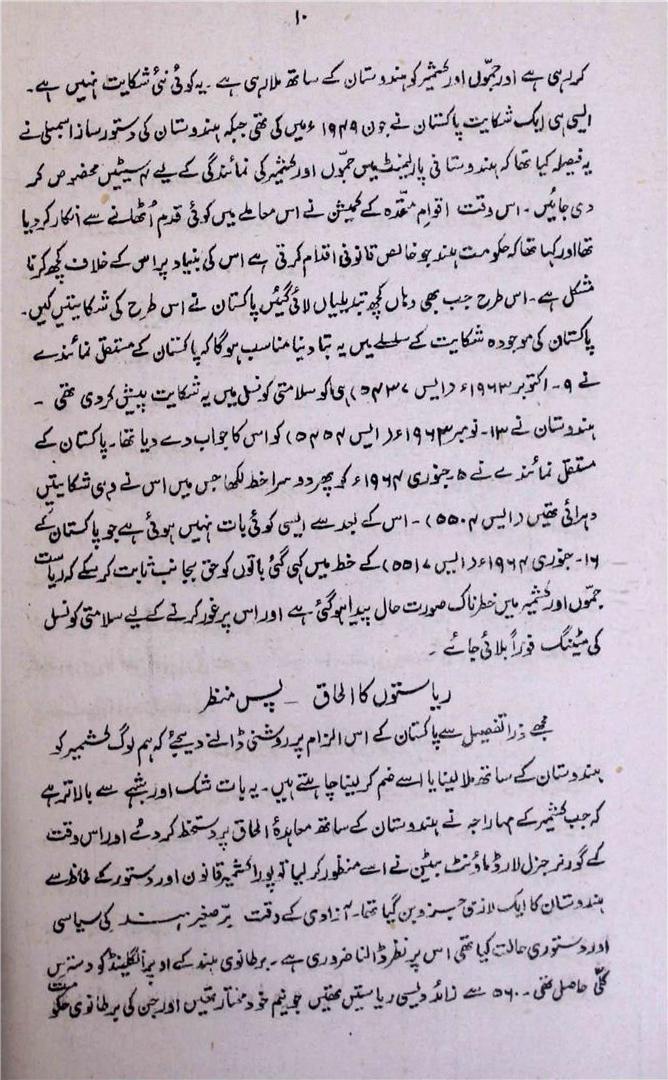 ۱۰
کر رہی ہے اور جموں اور کشمیر کو ہندوستان کے ساتھ ملا رہی ہے۔ یہ کوئی نئی شکایت نہیں ہے۔
ایسی ہی ایک شکایت پاکستان نے جون ۱۹۴۹ء میں کی تھی جبکہ ہندوستان کی دستور ساز اسمبلی نے
یہ فیصلہ کیا تھا کہ ہندوستانی پارلیمنٹ میں جموں اور کشمیر کی نمائندگی کے لیے ۴ سیٹیں مخصوص کر
دی جائیں۔ اس وقت اقوام متحدہ کے کمیشن نے اس معاملے میں کوئی قدم اُٹھانے سے انکار کر دیا
تھا اور کہا تھا کہ حکومت ہند جو خالص قانونی اقدام کرتی ہے اس کی بنیاد پر اس کے خلاف کچھ کرنا
مشکل ہے۔ اس طرح جب بھی وہاں کچھ تبدیلیاں لائی گئیں پاکستان نے اس طرح کی شکایتیں کیں۔
پاکستان کی موجودہ شکایت کے سلسلے میں یہ بتا دینا مناسب ہوگا کہ پاکستان کے مستقل نمائندے
نے ۹۔ اکتوبر ۱۹۶۳ء (ایس ۵۴۳۷) ہی کو سلامتی کونسل میں یہ شکایت پیش کر دی تھی۔
ہندوستان نے ۱۳۔ نومبر ۱۹۶۳ء (ایس ۵۴۵۴) کو اس کا جواب دے دیا تھا۔ پاکستان کے
مستقل نمائندے نے ۵۔ جنوری ۱۹۶۴ء کو پھر دوسرا خط لکھا جس میں اس نے وہی شکایتیں
دہرائی تھیں (ایس ۵۵۰۴)۔ اس کے بعد سے ایسی کوئی بات نہیں ہوئی ہے جو پاکستان کے
۱۶۔ جنوری ۱۹۶۴ء (ایس ۵۵۱۷) کے خط میں کہی گئی باتوں کو حق بجانب ثابت کر سکے کہ ریاست
جموں اور کشمیر میں خطرناک صورت حال پیدا ہو گئی ہے اور اس پر غور کرنے کے لیے سلامتی کونسل
کی میٹنگ فوراً بلائی جائے۔
ریاستوں کا الحاق ۔ پس منظر
مجھے ذرا تفصیل سے پاکستان کے اس الزام پر روشنی ڈالنے دیجئے کہ ہم لوگ کشمیر کو
ہندوستان کے ساتھ ملا لینا یا اسے ضم کر لینا چاہتے ہیں۔ یہ بات شک اور شبہے سے بالاتر ہے
کہ جب کشمیر کے مہاراجہ نے ہندوستان کے ساتھ معاہدۂ الحاق پر دستخط کر دئے اور اس وقت
کے گورنر جنرل لارڈ ماؤنٹ بیٹن نے اسے منظور کر لیا تو پورا کشمیر قانون اور دستور کے لحاظ سے
ہندوستان کا ایک لازمی جزو بن گیا تھا۔ آزادی کے وقت برّصغیر ہند کی سیاسی
اور دستوری حالت کیا تھی اس پر نظر ڈالنا ضروری ہے۔ برطانوی ہند کے اوپر انگلینڈ کو دسترس
کلّی حاصل تھی۔ ۵۶۰ سے زائد دیسی ریاستیں تھیں جو نیم خود مختار تھیں اور جن کی برطانوی حکومت